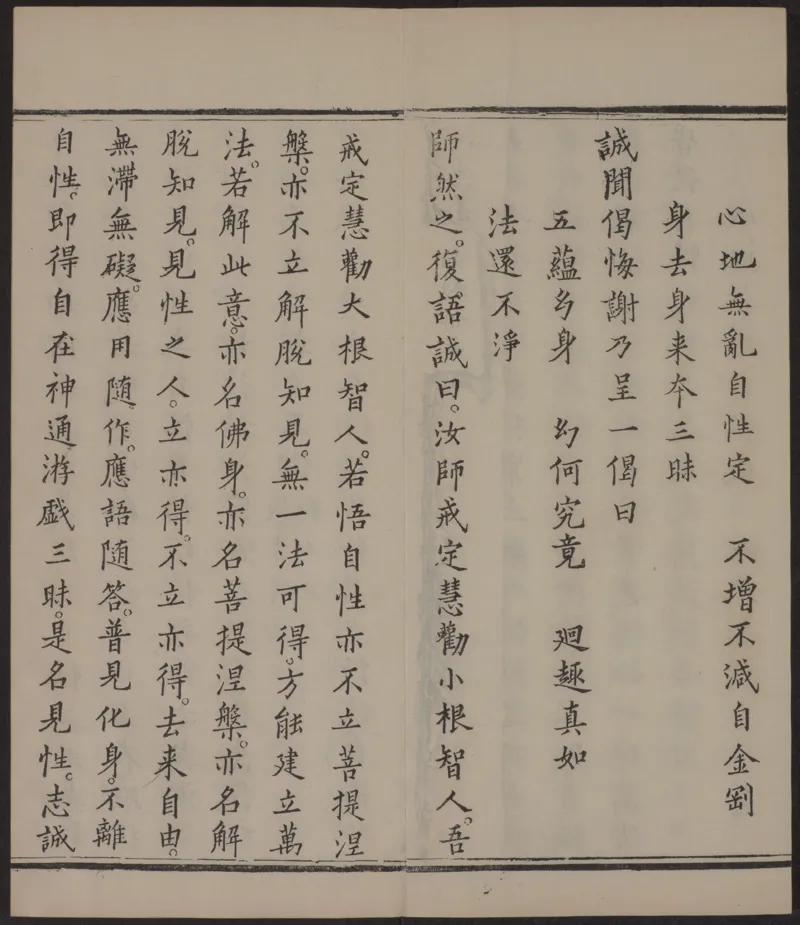 心地無亂自性定　不增不減自金剛
身去身来本三昧
誠聞偈悔謝乃呈一偈曰
五蘊幻身　幻何究竟　廻趣真如
法還不淨
師然之。復語誠曰。汝師戒定慧勸小根智人。吾
戒定慧勸大根智人。若悟自性亦不立菩提涅
槃。亦不立解脫知見。無一法可得。方能建立萬
法。若解此意。亦名佛身。亦名菩提涅槃。亦名解
脫知見。見性之人。立亦得。不立亦得。去来自由。
無滯無礙。應用随作。應語随答。普見化身。不離
自性。即得自在神通游戯三昧。是名見性。志誠